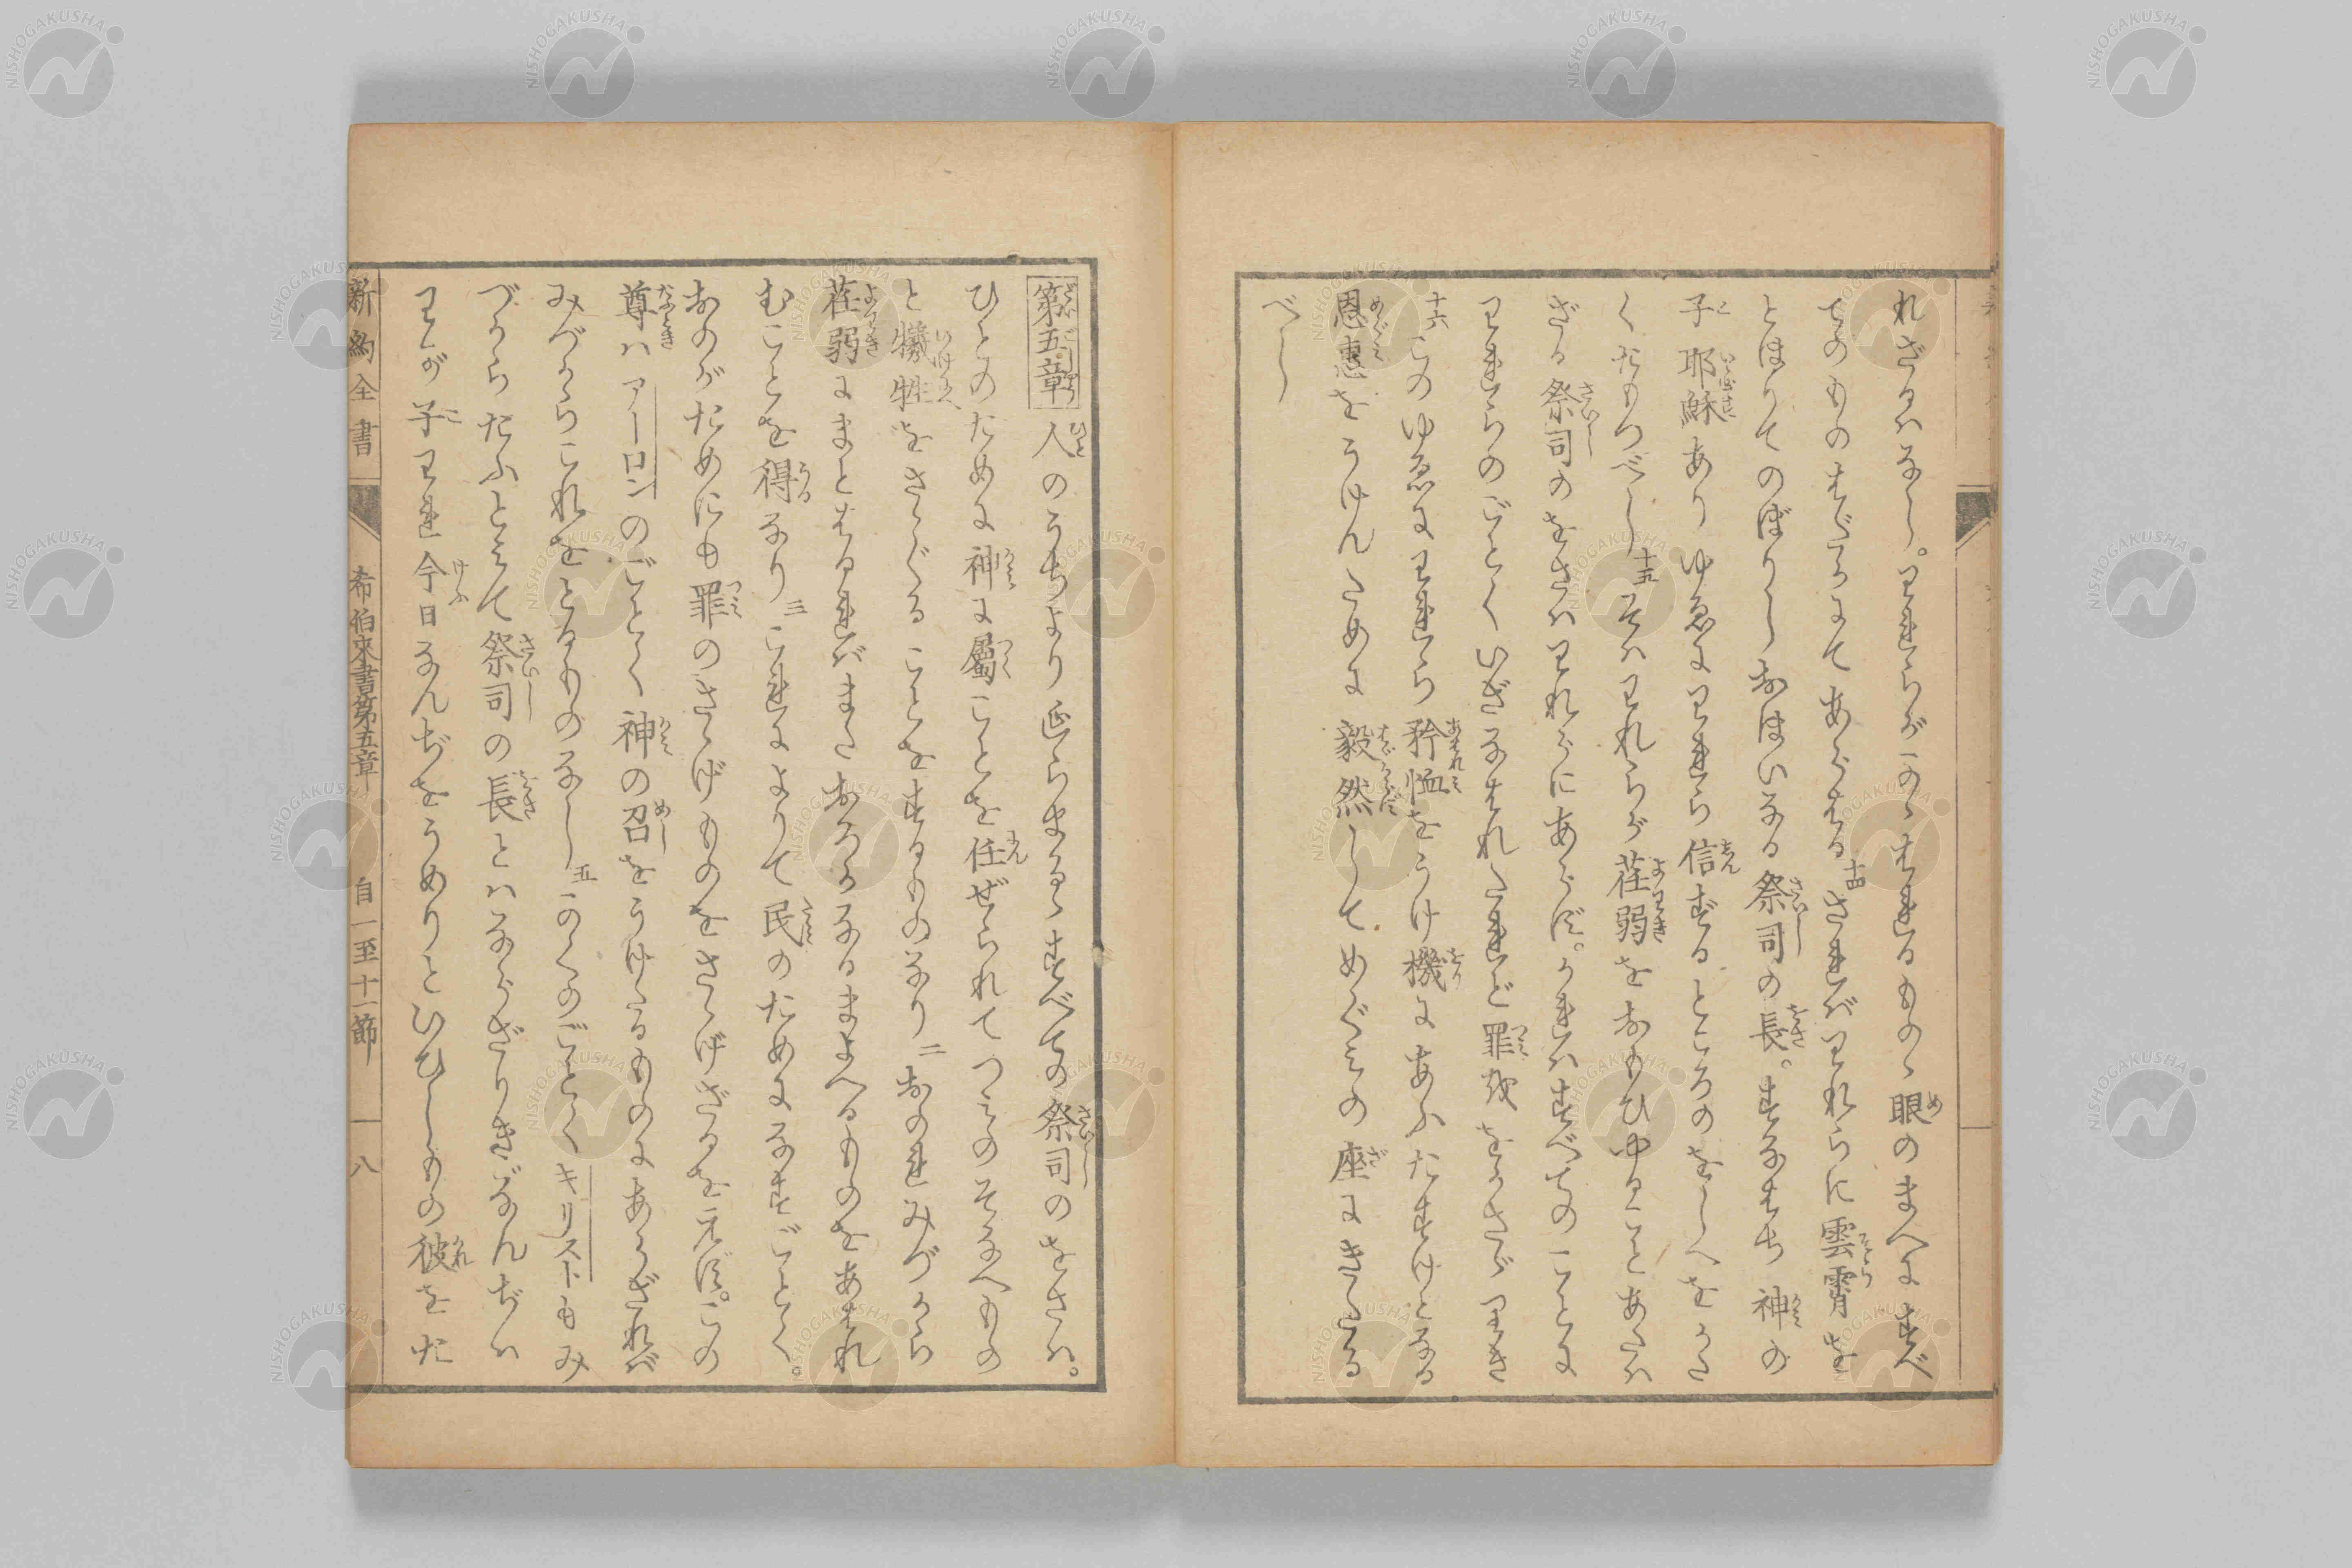 れざるハなし。われらがつかはれるものゝ眼のまへにすべ
てのものはだかにてあらはる十四されバわれらに雲霄を
とほりてのぼりしおほいなる祭司の長。すなはち神の
子耶穌ありゆゑにわれら信ずるところのをしへをかた
くたもつべし十五そハわれらが荏弱をおもひやることあたハ
ざる祭司のをさハわれらにあらず。かれハすべてのことに
われらのごとくいざなはれたれど罪をおかさゞりき
十六このゆゑにわれら矜恤をうけ機にあふたすけとなる
恩惠をうけんために毅然してめぐみの座にきたる
べし
第五章 人のうちより選らまるゝすべての祭司のをさハ。
ひとのために神に屬ことを任ぜられてつみのそなへもの
と犠牲をさゝぐることをするものなり二おのれみづから
荏弱にまとはるればまたおろかなるまよへるものをあはれ
むことを得なり三これによりて民のためになすごとく。
おのがためにも罪のさゝげものをさゝげざるをえず。この
尊ハアーロンのごとく神の召をうけたるものにあらざれバ
みづからこれをとるものなし五このごとくキリストもみ
づからたふとみて祭司の長とハならざりきなんぢハ
わが子われ今日なんぢをうめりといひしもの彼をた
新約全書 希伯來書第五章 自一至十一節 一八